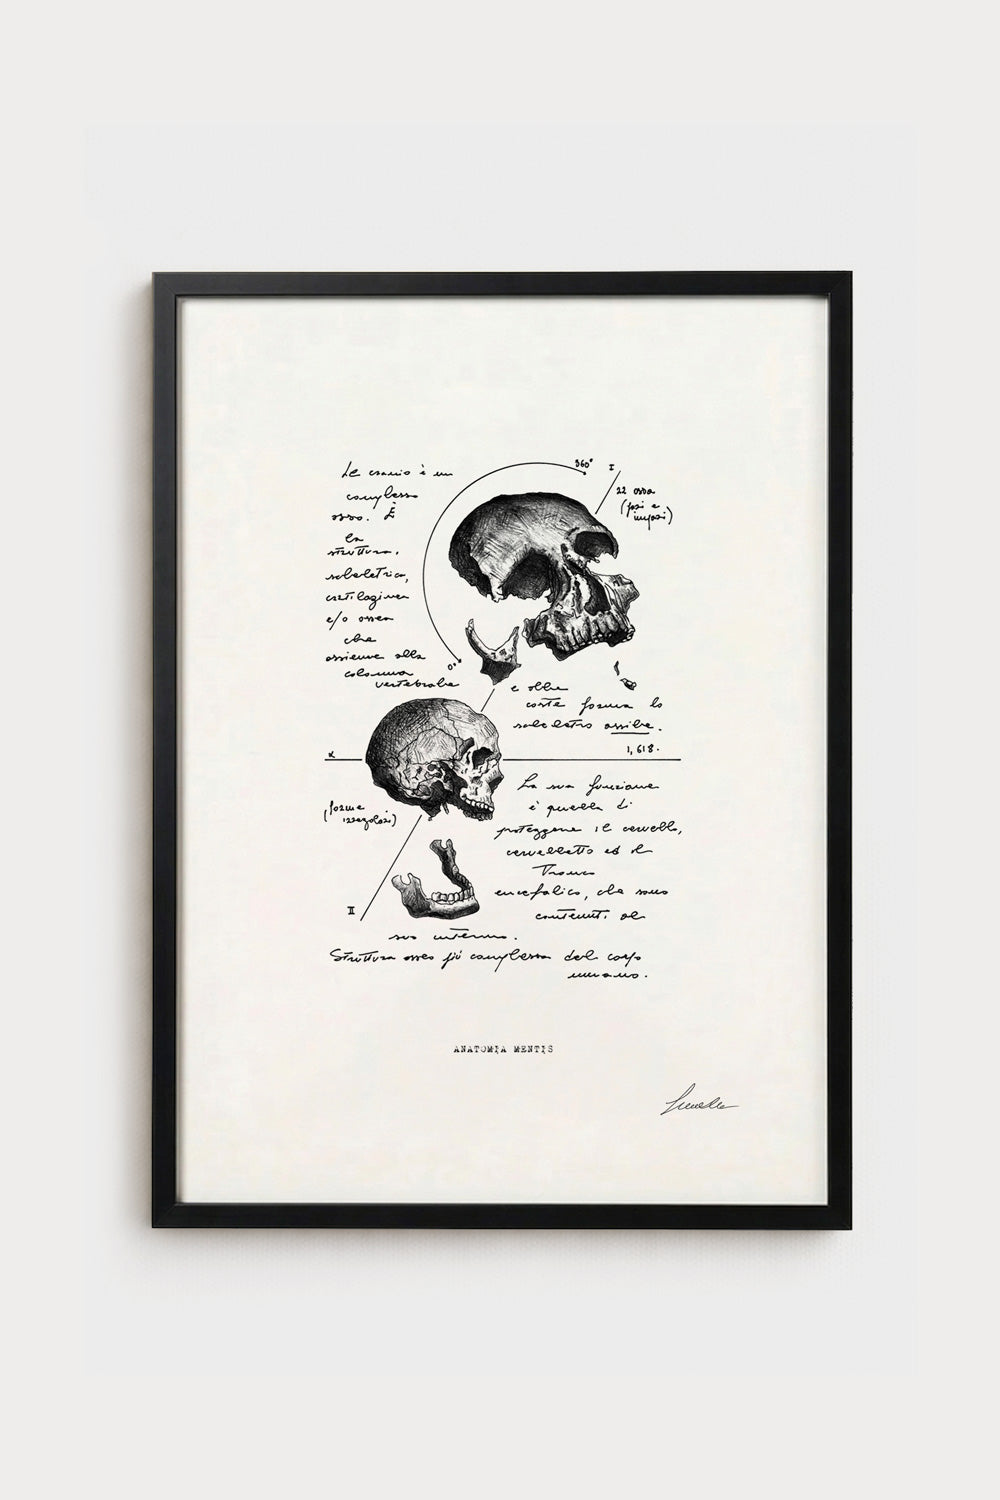 360°
I
Le cranio è un
complesso
osseo. È
la
struttura,
scheletrica,
cartilaginea
e/o ossea
che
assieme alla
colonna
vertebrale
22 ossa
(pari e
impari)
0°
e alle
coste forma lo
scheletro assile.
1,618.
K
(forme
irregolari)
II
La sua funzione
è quella di
proteggere il cervello,
cervelletto ed il
Tronco
encefalico, che sono
contenuti al
suo interno.
Struttura ossea più complessa del corpo
umano.
ANATOMIA MENTIS